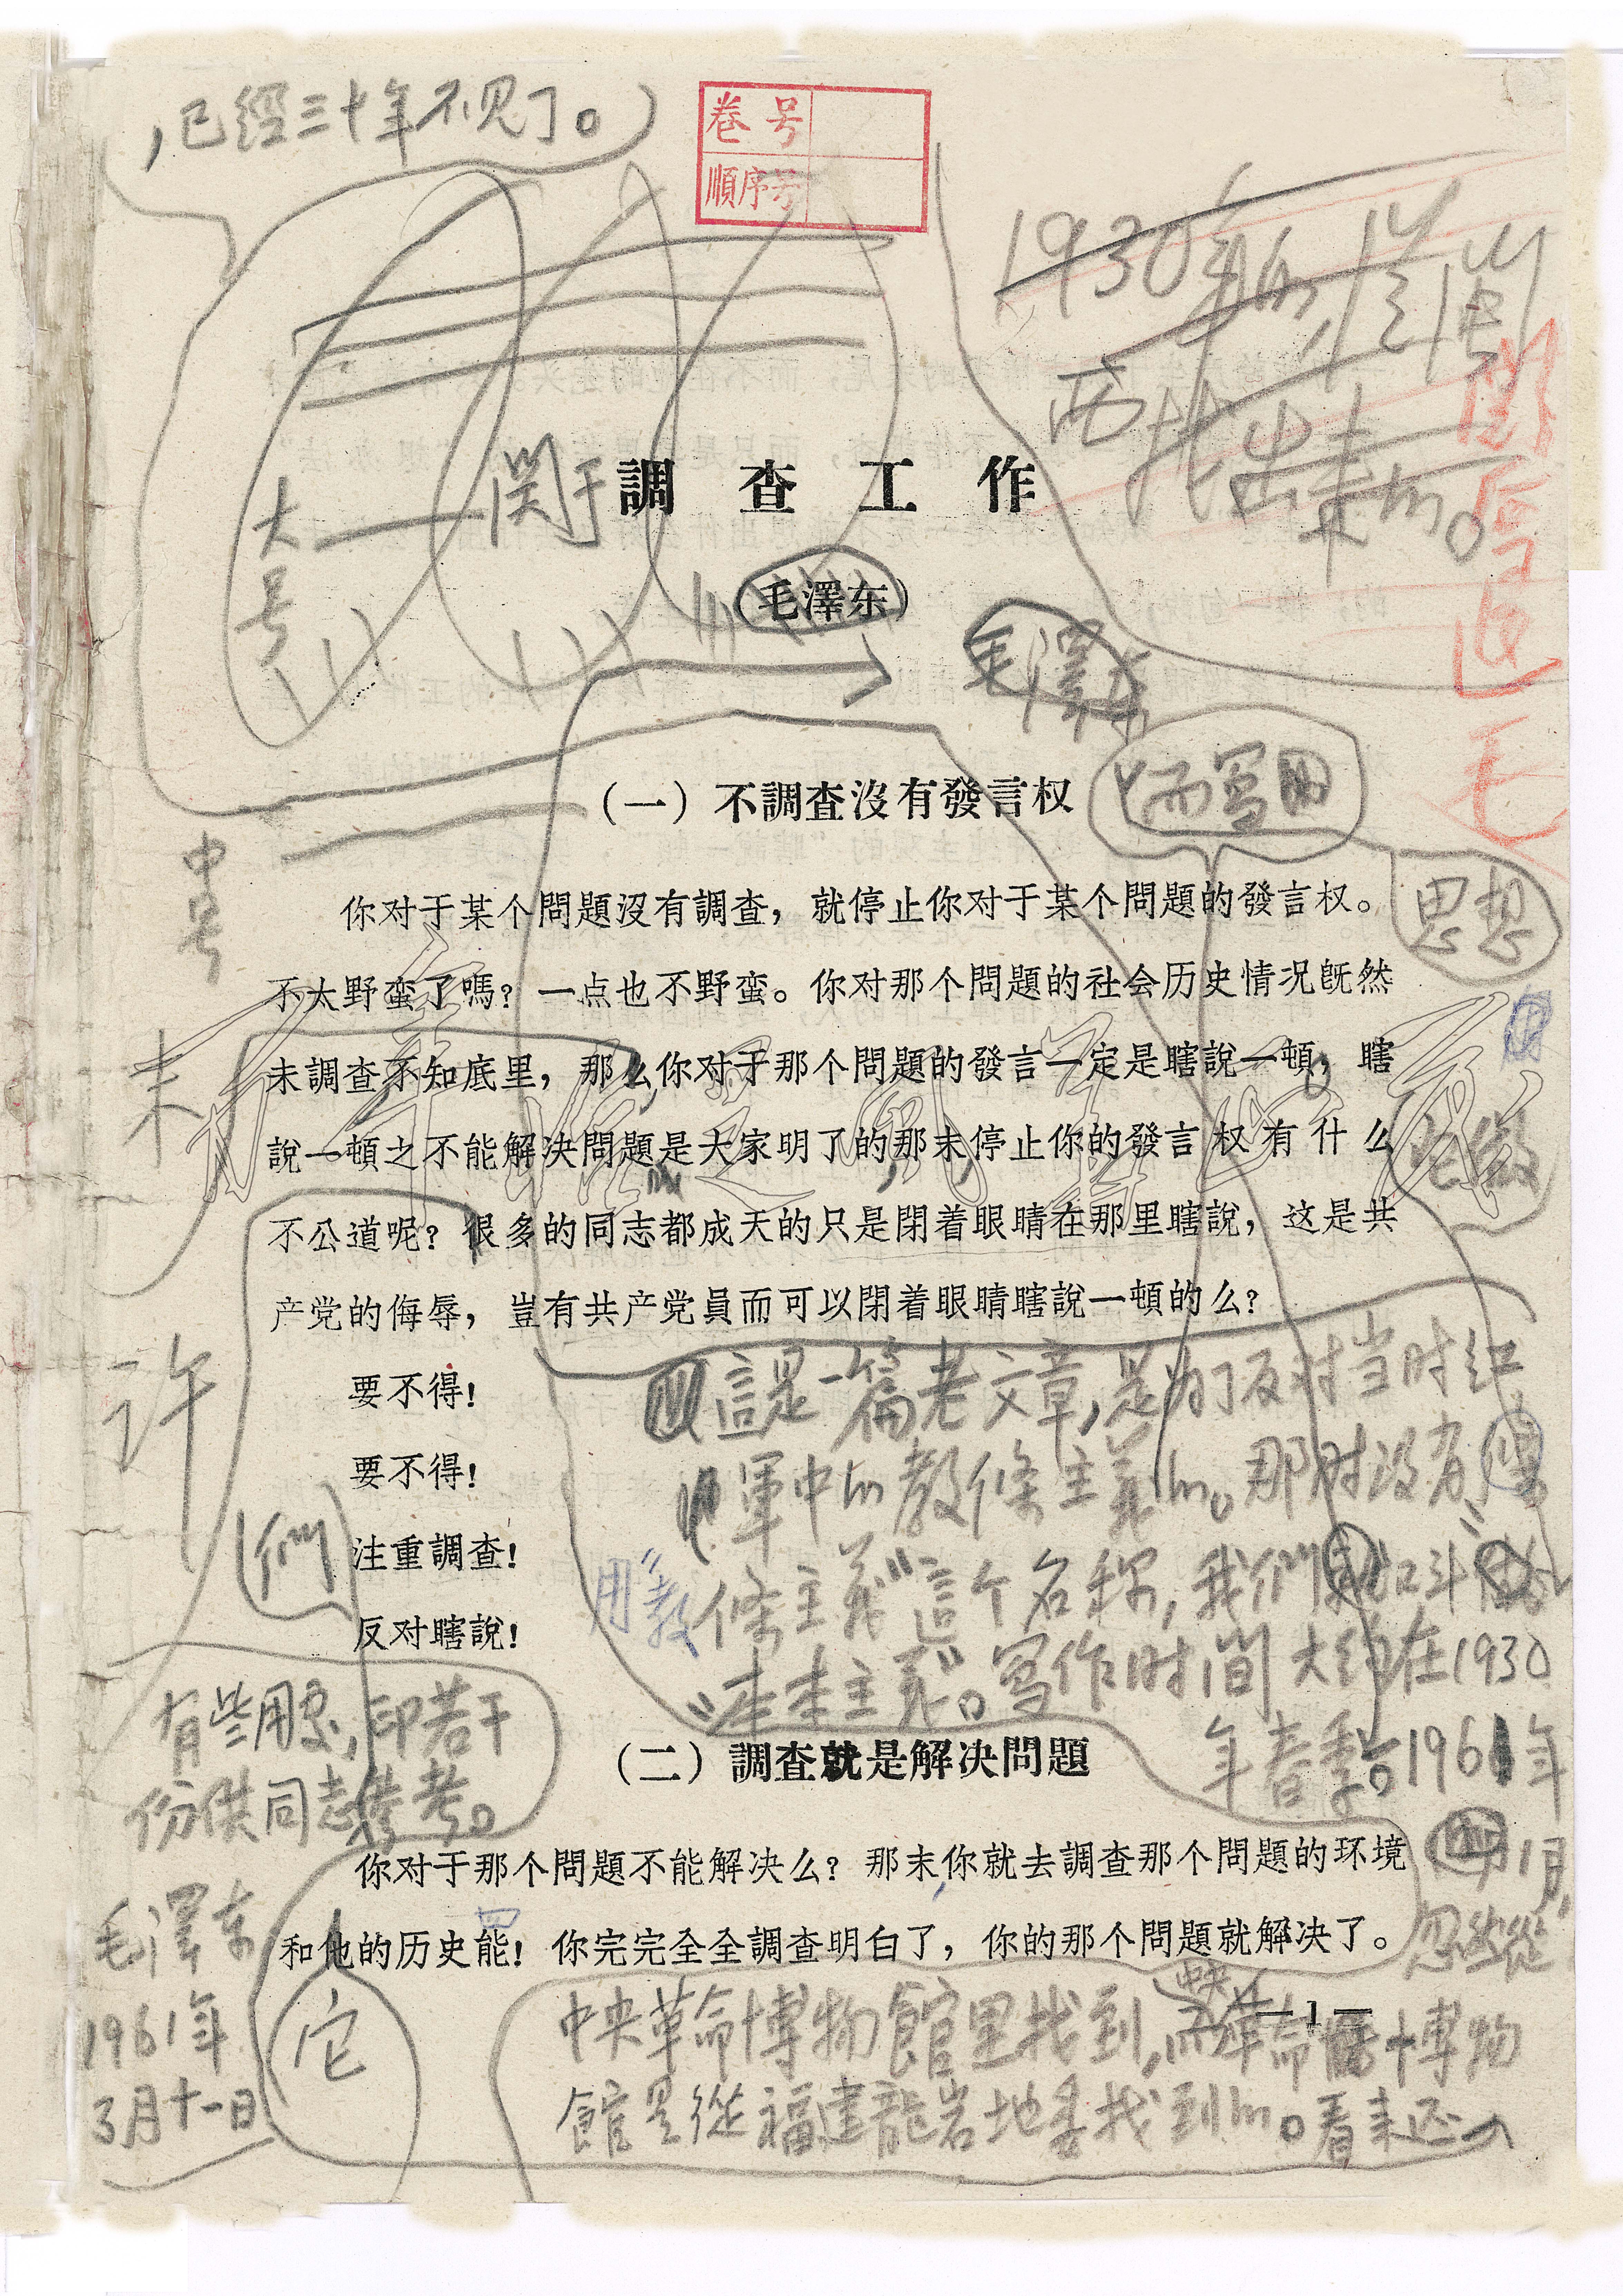 ，已經三十年不見了。）
卷号
順序号
1930年的，從閩
西找出来的。
閱后退
毛
大号
関于調查工作
（毛澤东）
毛澤东
（一）不調查沒有發言权
而寫的
思想
中号
你对于某个問題沒有調查，就停止你对于某个問題的發言权。
不太野蛮了嗎？一点也不野蛮。你对那个問題的社会历史情况旣然
未
未調查不知底里，那么，你对于那个問題的發言一定是瞎說一頓，瞎
說一頓之不能解决問題是大家明了的那末停止你的發言权有什么
不公道呢？很多的同志都成天的只是閉着眼睛在那里瞎說，这是共
产党的侮辱，豈有共产党員而可以閉着眼睛瞎說一頓的么？
許
們
要不得！
要不得！
注重調查！
反对瞎說！
這是一篇老文章，是为了反对当时紅
軍中的教條主義的。那时没有
用“教條主義”這个名称，我們叫它
“本本主義”。寫作时间大約在1930
年春季。1961年
1月，
忽然從
有些用處，印若干
份供同志参考。
毛澤东
1961年
3月十一日
（二）調查就是解决問題
你对于那个問題不能解决么？那末，你就去調查那个問題的环境
和他的历史能！你完完全全調查明白了，你的那个問題就解决了。
它
中央革命博物館里找到，而中央革命博物
館是從福建龍岩地委找到的。看来还
—1—